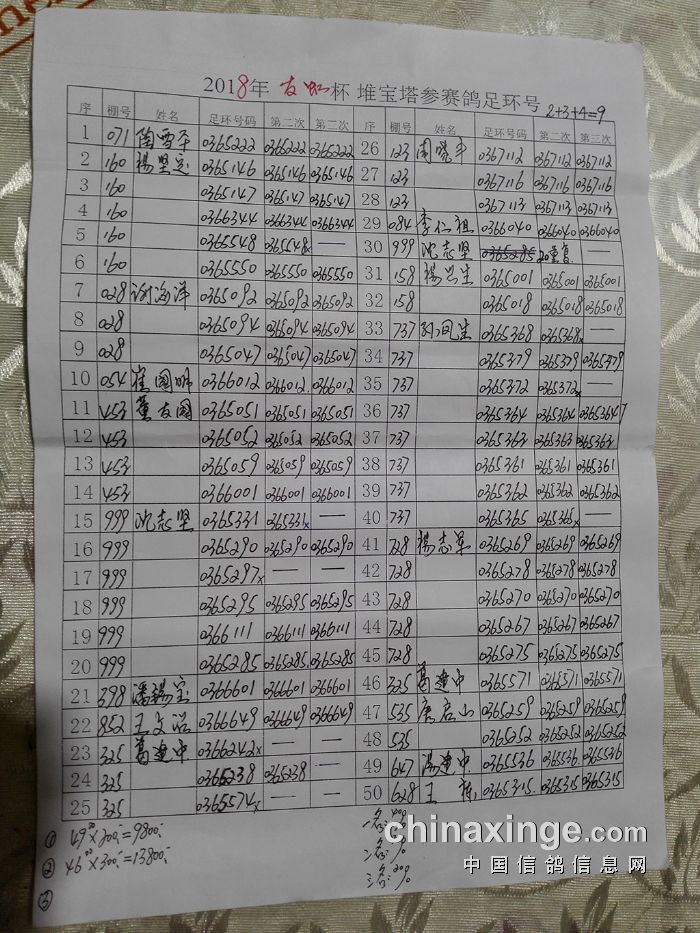 2018年 友虹杯 堆宝塔参赛鸽足环号 2+3+4=9
序 棚号 姓名 足环号码 第二次 第三次 序 棚号 姓名 足环号码 第二次 第三次
1 071 陶雪平 0365222 0365222 0365222 26 123 周晓平 0367112 0367112 0367112
2 160 杨坚定 0365146 0365146 0365146 27 123 0367116 0367116 0367116
3 160 0365147 0365147 0365147 28 123 0367113 0367113 0367113
4 160 0366344 0366344 0366344 29 084 李仁祖 0366040 0366040 0366040
5 160 0365548 0365548x — 30 999 沈志坚 0365285 20重复 —
6 160 0365550 0365550 0365550 31 158 杨兴生 0365001 0365001 0365001
7 028 谢海洋 0365092 0365092 0365092 32 158 0365018 0365018 0365018
8 028 0365094 0365094 0365094 33 737 孙同生 0365368 0365368x —
9 028 0365047 0365047 0365047 34 737 0365379 0365379 0365379
10 054 崔国明 0366012 0366012 0366012 35 737 0365372 0365372x —
11 453 董友国 0365051 0365051 0365051 36 737 0365364 0365364 0365364
12 453 0365052 0365052 0365052 37 737 0365363 0365363 0365363
13 453 0365059 0365059 0365059 38 737 0365361 0365361 0365361
14 453 0366001 0366001 0366001 39 737 0365362 0365362 0365362
15 999 沈志坚 0365331 0365331x — 40 737 0365365 0365365x —
16 999 0365290 0365290 0365290 41 728 杨志军 0365269 0365269 0365269
17 999 0365297x — — 42 728 0365278 0365278 0365278
18 999 0365295 0365295 0365295 43 728 0365270 0365270 0365270
19 999 0366111 0366111 0366111 44 728 0365267 0365267 0365267
20 999 0365285 0365285 0365285 45 728 0365275 0365275 0365275
21 398 潘锡宝 0366601 0366601 0366601 46 325 葛建中 0365571 0365571 0365571
22 852 王文浩 0366649 0366649 0366649 47 535 唐启山 0365259 0365259 0365259
23 325 葛建中 0366242x — — 48 535 0365252 0365252 0365252
24 325 0365238 0365238 — 49 647 汤建中 0365536 0365536 0365536
25 325 0365574x — — 50 628 王栋 0365315 0365315 0365315
① 49×200=9800
② 46×300=13800
③
chinaxinge.com
中国信鸽信息网